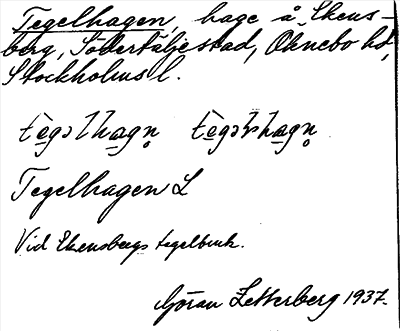 Tegelhagen, hage å Ekens-
berg, Södertälje stad, Öknebo hd,
Stockholms l.
Tegelhagen L
Vid Ekensbergs tegelbruk.
Göran Zetterberg 1937.